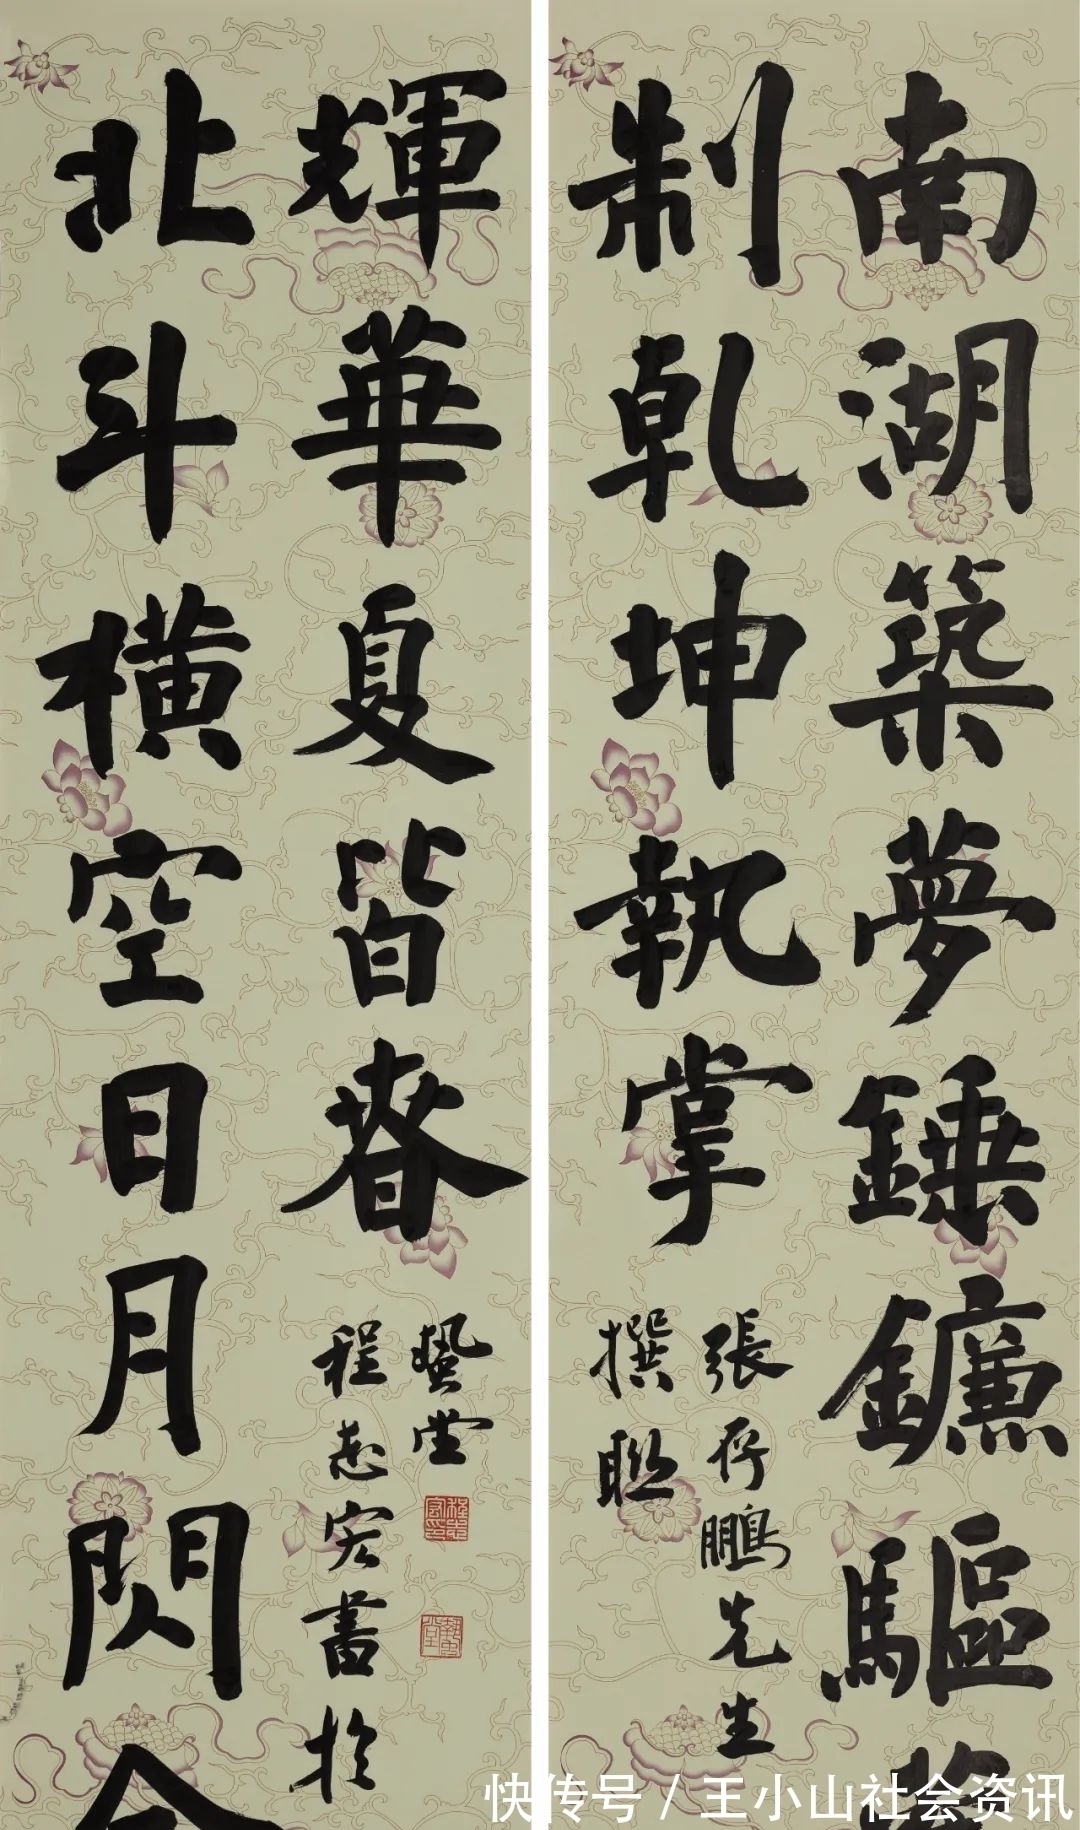 南湖築夢錘鐮驅
制乾坤執掌
張存鵬先生
撰聯
北斗橫空日月閃
輝華夏皆春
藝堂
程志宏書於
快传号/王小山社会资讯